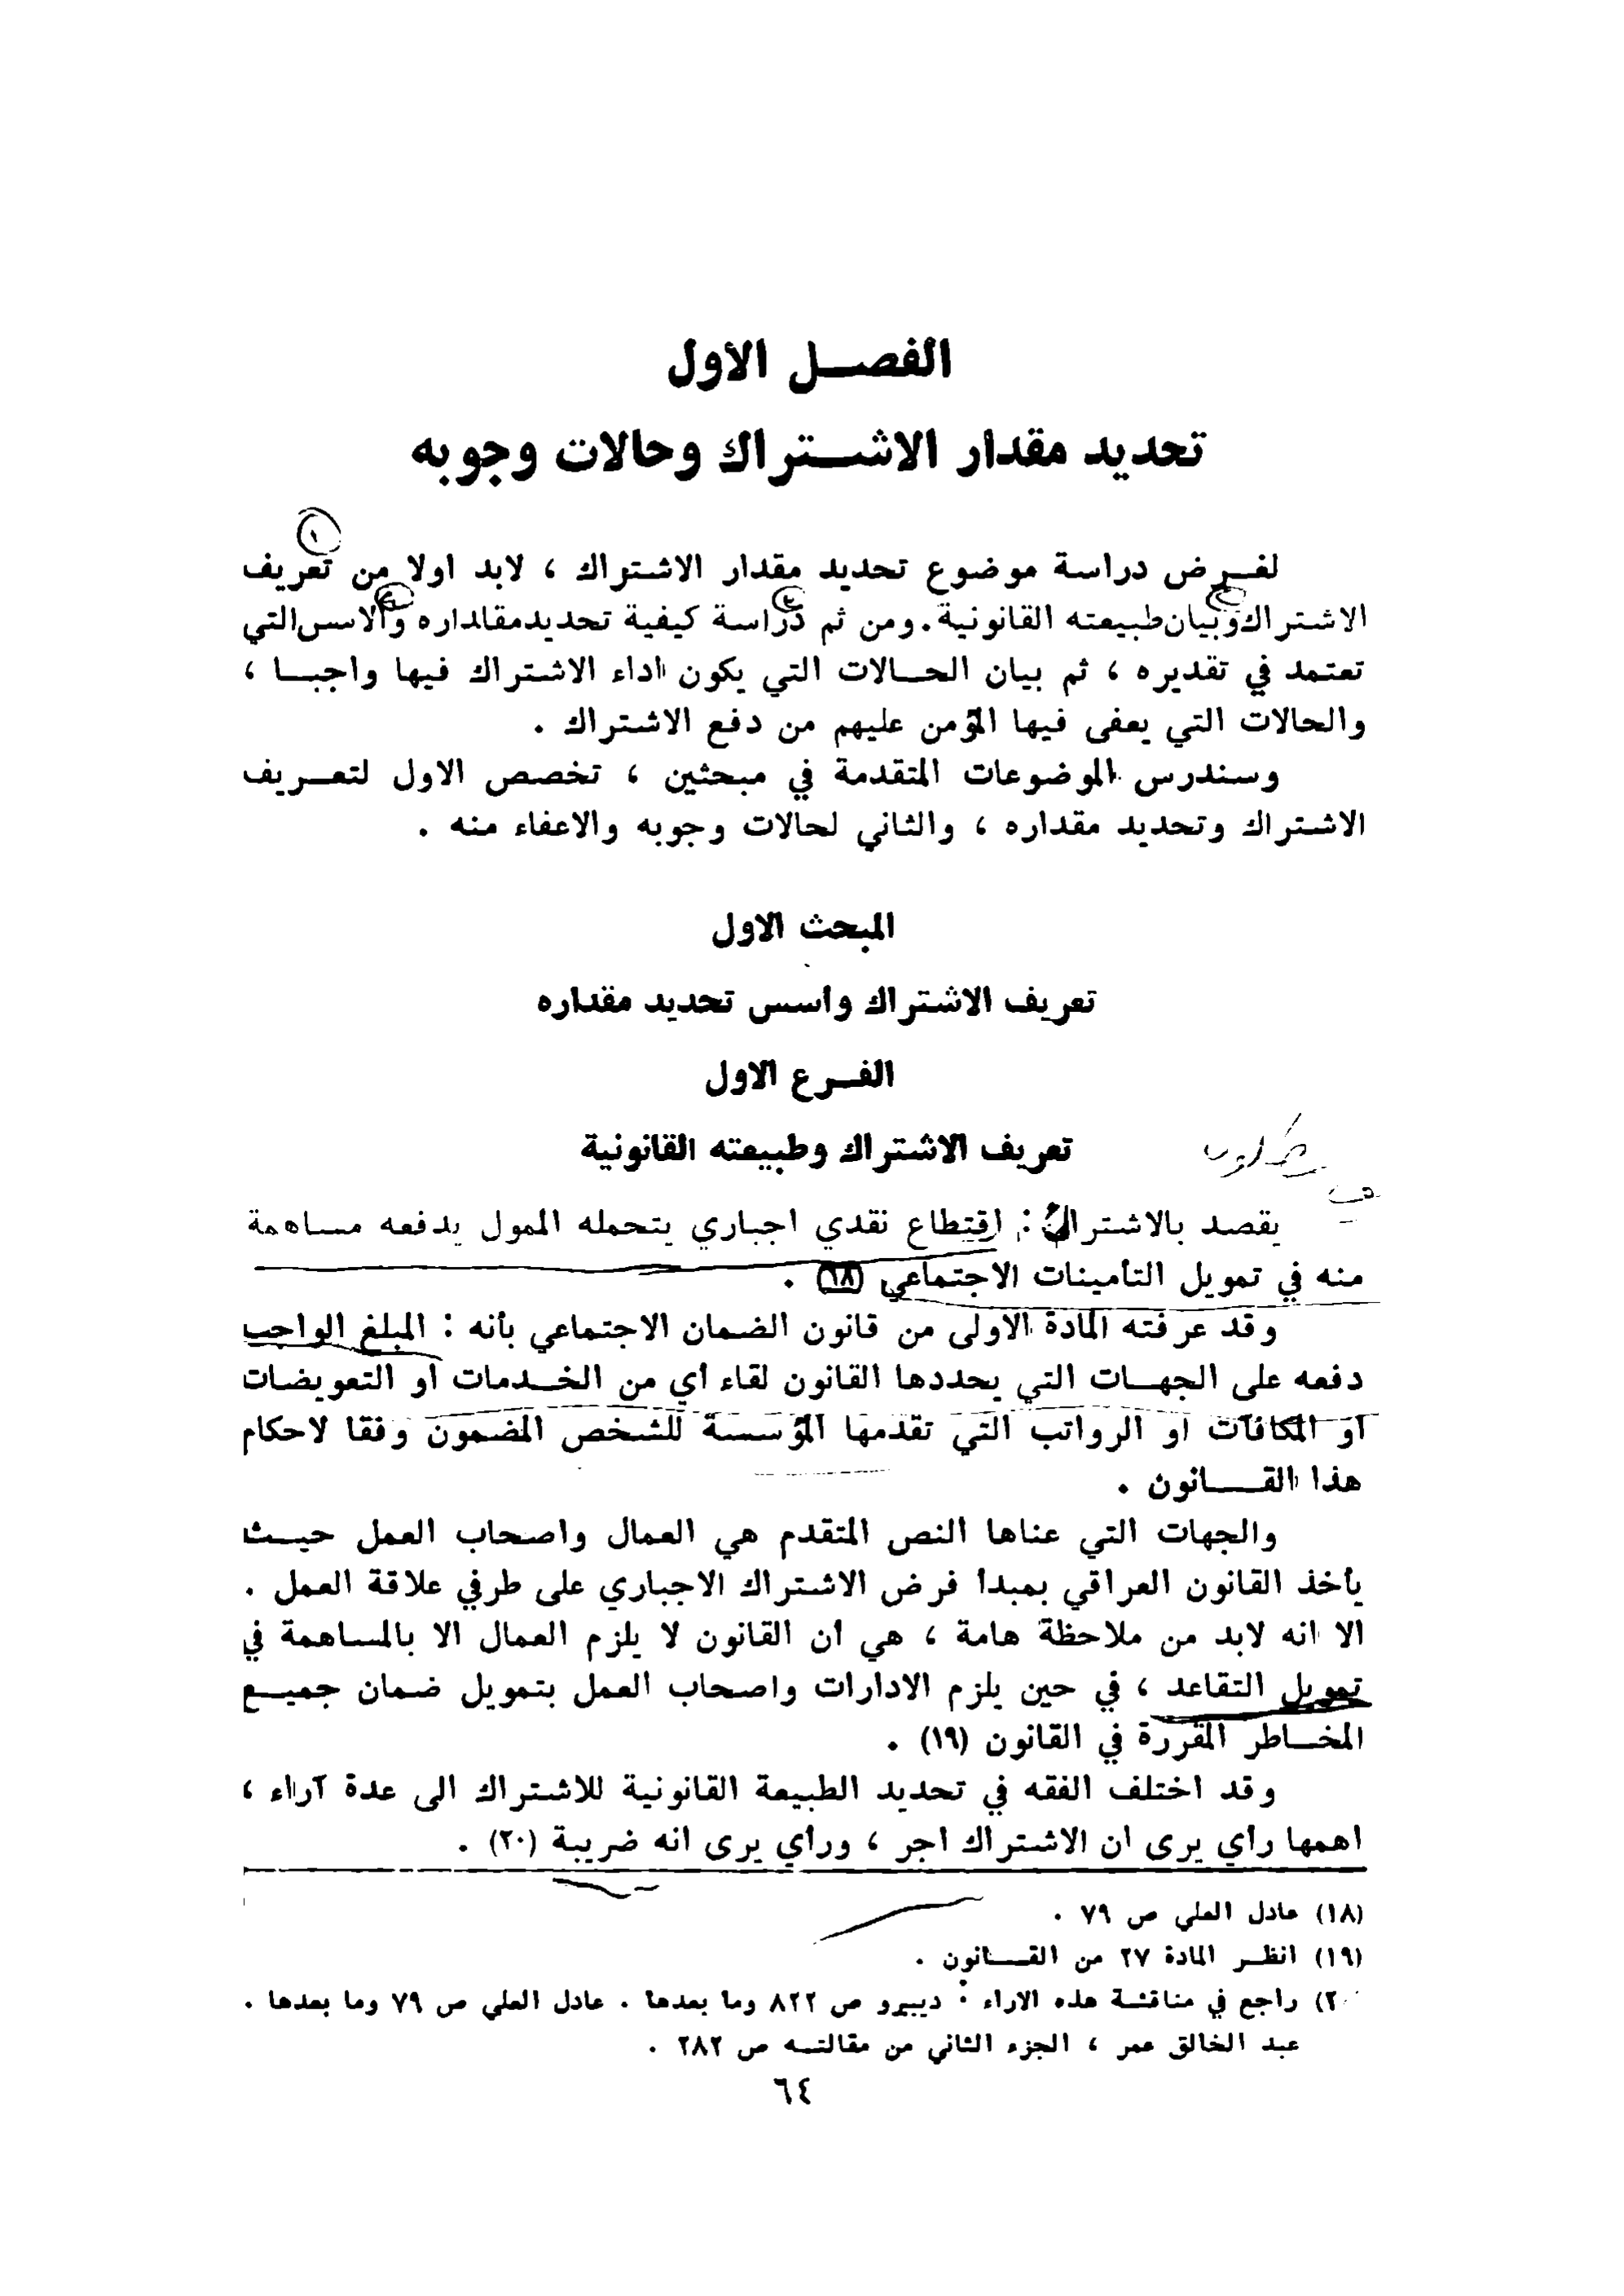 الفصل الأول
تحديد مقدار الاشتراك وحالات وجوبه
١
لغرض دراسة موضوع تحديد مقدار الاشتراك ، لابد اولا من تعريف
الاشتراك وبيان طبيعته القانونية . ومن ثم دراسة كيفية تحديد مقداره والاسس التي
تعتمد في تقديره ، ثم بيان الحالات التي يكون اداء الاشتراك فيها واجبا ،
والحالات التي يعفى فيها المؤمن عليهم من دفع الاشتراك .
وسندرس الموضوعات المتقدمة في مبحثين ، تخصص الاول لتعريف
الاشتراك وتحديد مقداره ، والثاني لحالات وجوبه والاعفاء منه .
المبحث الاول
تعريف الاشتراك واسس تحديد مقداره
الفرع الاول
تعريف الاشتراك وطبيعته القانونية
يقصد بالاشتراك : اقتطاع نقدي اجباري يتحمله الممول يدفعه مساهمة
منه في تمويل التأمينات الاجتماعي (١٨) .
وقد عرفته المادة الاولى من قانون الضمان الاجتماعي بأنه : المبلغ الواجب
دفعه على الجهات التي يحددها القانون لقاء أي من الخدمات أو التعويضات
او المكافآت او الرواتب التي تقدمها المؤسسة للشخص المضمون وفقا لاحكام
هذا القانون .
والجهات التي عناها النص المتقدم هي العمال واصحاب العمل حيث
يأخذ القانون العراقي بمبدأ فرض الاشتراك الاجباري على طرفي علاقة العمل .
الا انه لابد من ملاحظة هامة ، هي ان القانون لا يلزم العمال الا بالمساهمة في
تمويل التقاعد ، في حين يلزم الادارات واصحاب العمل بتمويل ضمان جميع
المخاطر المقررة في القانون (١٩) .
وقد اختلف الفقه في تحديد الطبيعة القانونية للاشتراك الى عدة آراء ،
اهمها رأي يرى ان الاشتراك اجر ، ورأي يرى انه ضريبة (٢٠) .
(١٨) عادل العلي ص ٧٩ .
(١٩) انظر المادة ٢٧ من القانون .
٢٠) راجع في مناقشة هذه الاراء : ديبيرو ص ٨٢٢ وما بعدها . عادل العلي ص ٧٩ وما بعدها .
عبد الخالق عمر ، الجزء الثاني من مقالته ص ٢٨٢ .
٦٤